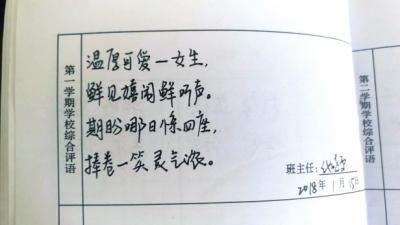 第一学期学校综合评语
温厚可爱一女生,
鲜见嬉闹鲜听声。
期盼哪日惊四座,
捧卷一笑灵气浓。
班主任:
2018年1月15日
第二学期学校综合评语